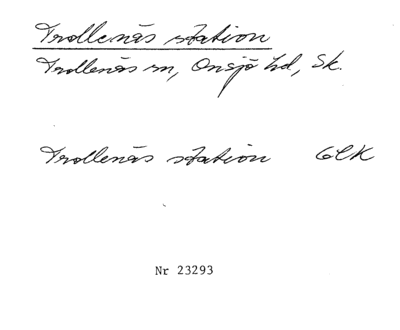 Trollenäs station
Trollenäs sn, Onsjö hd, Sk.
Trollenäs station GEK
Nr 23293